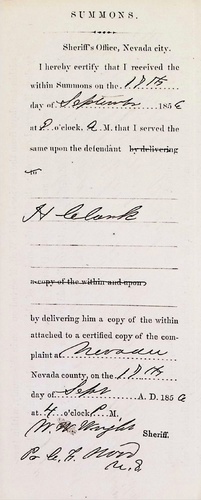 SUMMONS.
Sheriff's Office, Nevada city.
I hereby certify that I received the
within Summons on the 17th
day of September 1856
at 8 o'clock. A.M. that I served the
same upon the defendant by delivering
to
H Clark
a copy of the within and upon
by delivering him a copy of the within
attached to a certified copy of the com-
plaint at Nevada
Nevada county, on the 17th
day of Sept A. D. 1856
at 4 o'clock P. M.
W. W. Wright Sheriff.
By